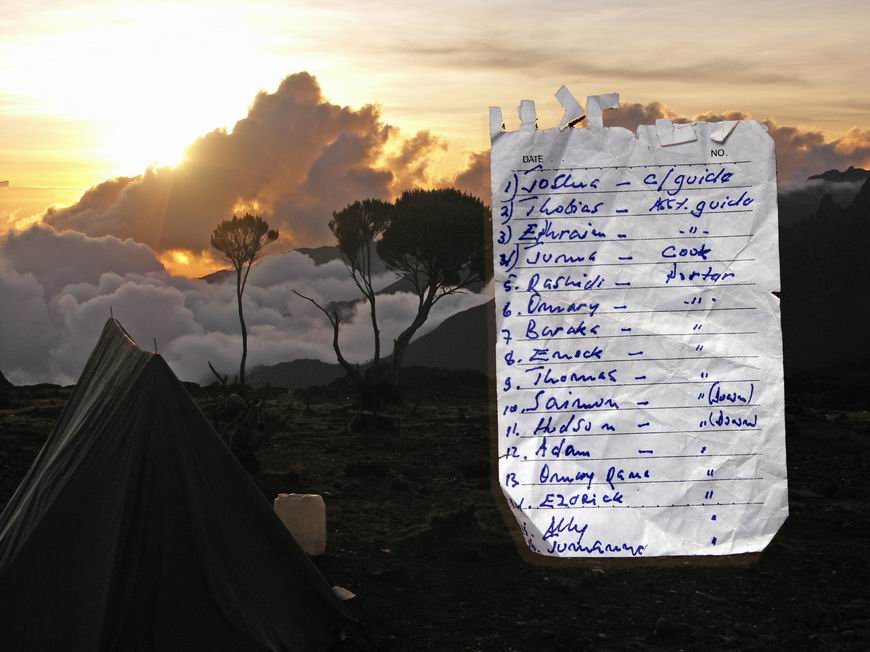 DATE NO.
1) Joshua - c/guide
2) Thobias - Asst. guide
3) Ephraim - -"-
4) Juma - Cook
5. Rashidi - Porter
6. Omary - -"-
7 Baraka - "
8. Enock - "
9. Thomas - "
10. Saimon - " (Down)
11. Hudson - " (Down)
12. Adam - "
13 Omary Rama "
14. Ezdrick "
Ally "
Jumanne "